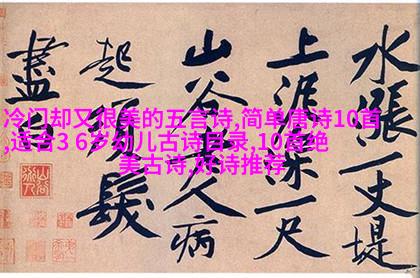 冷门却又很美的五言诗,简单唐诗10首
,适合3 6岁幼儿古诗目录,10首绝
美古诗,好诗推荐
水漲一丈堤
上泥深一尺
山谷老人病
起須髮
盡